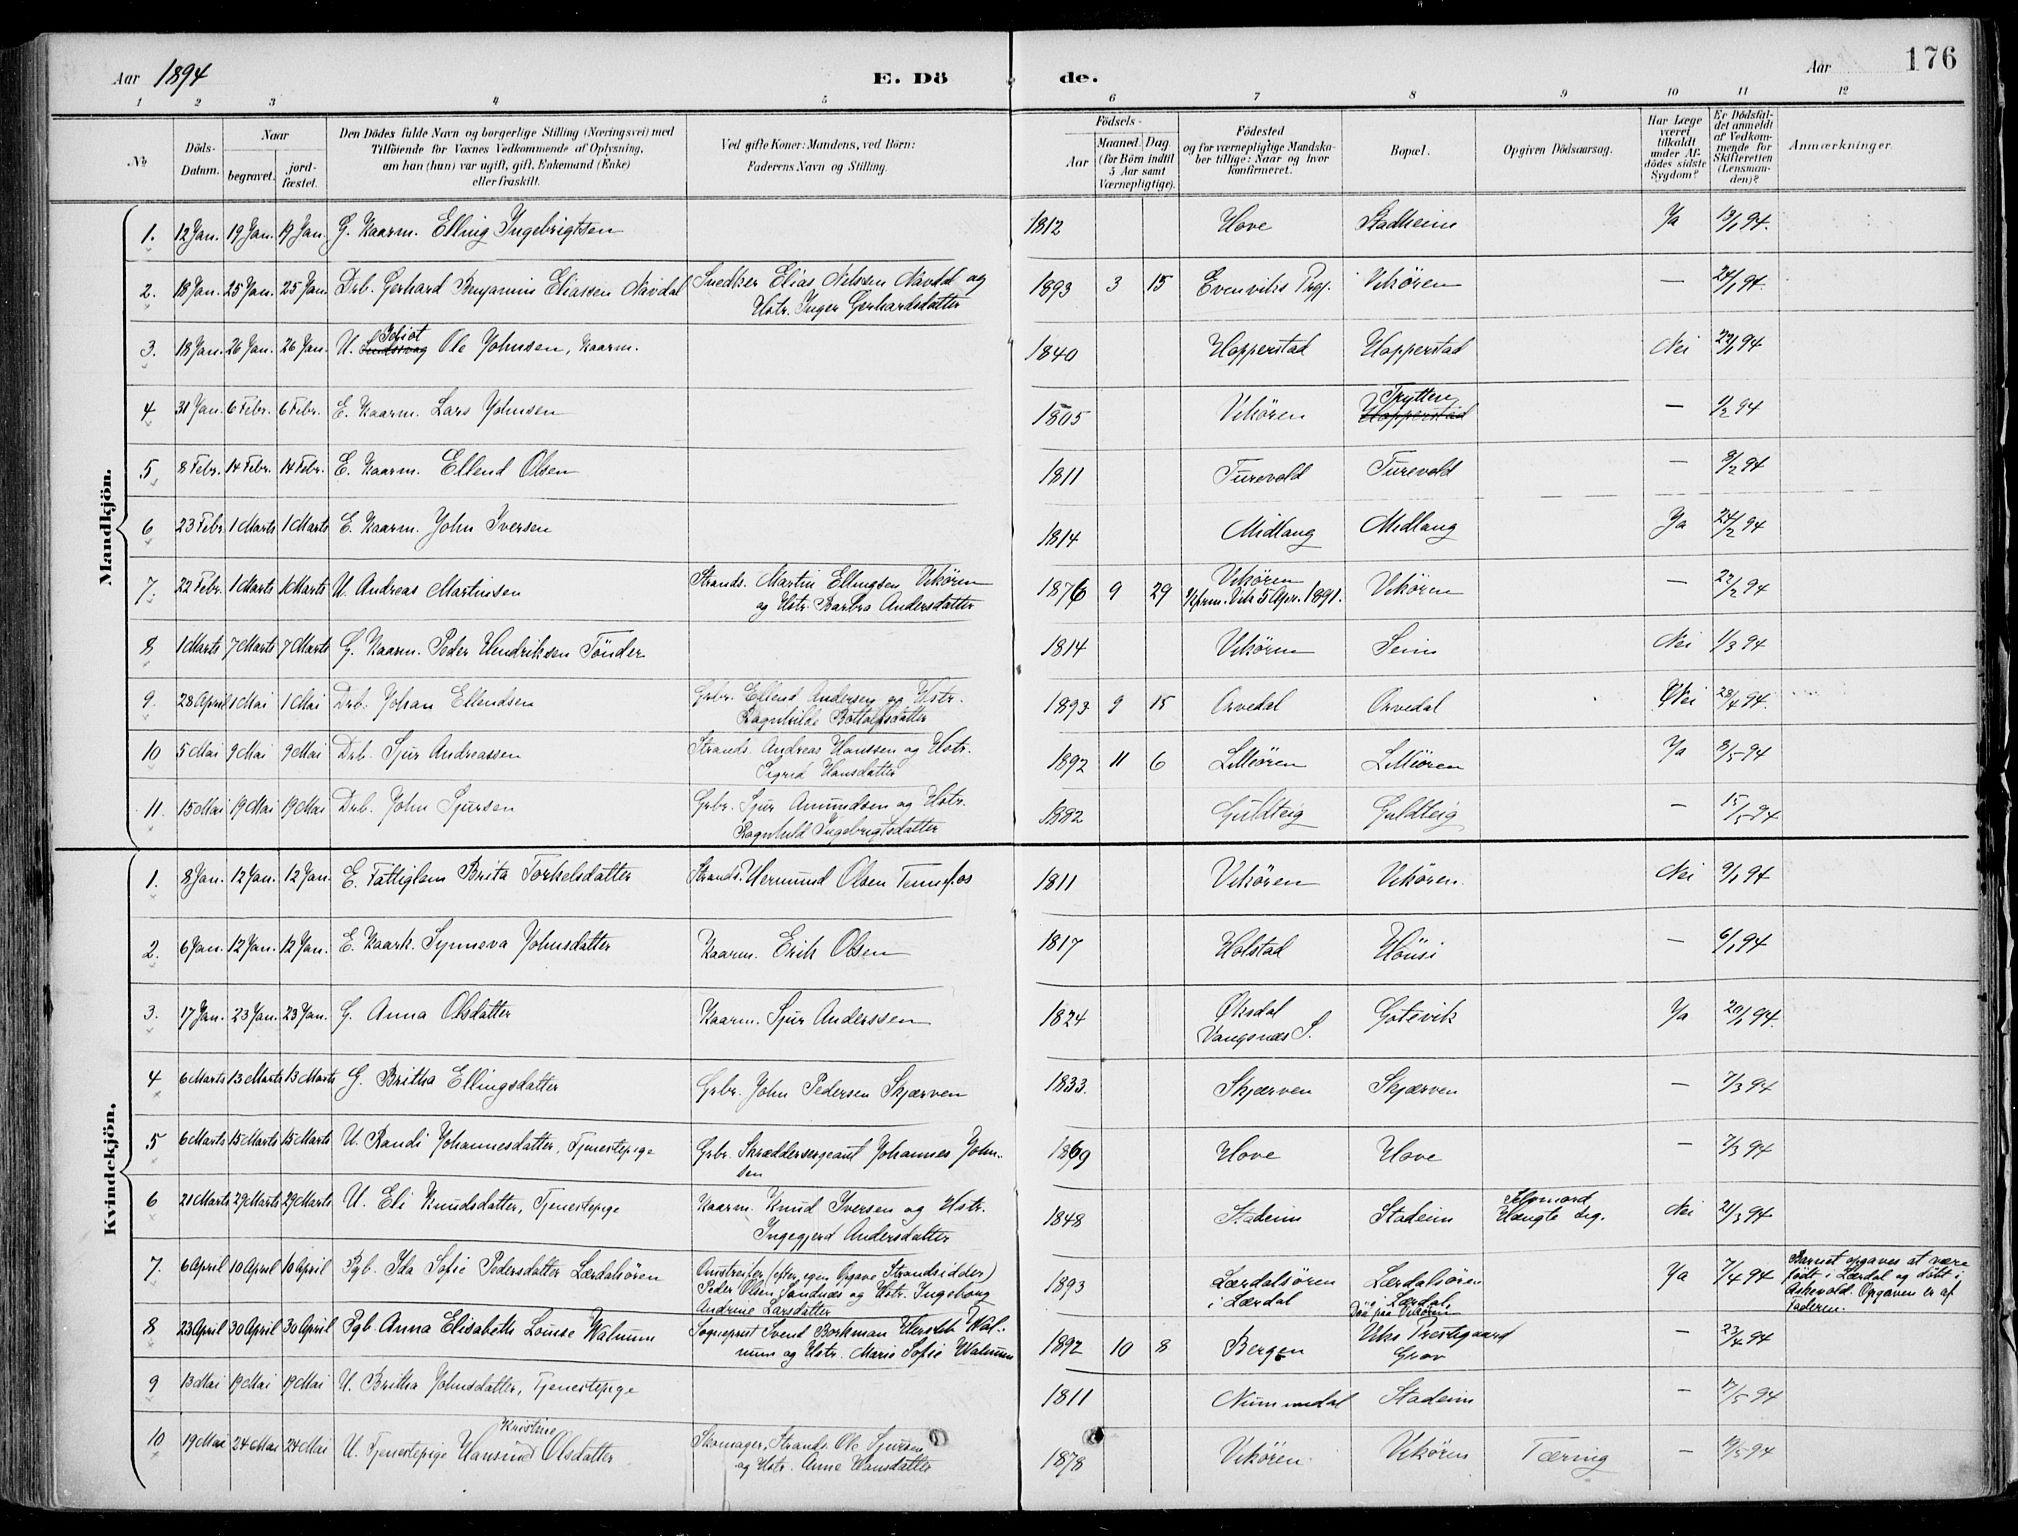 Aar 1894
E. Dö
de.
Aar
176
1 2 3 4 5 6 7 8 9 10 11 12
No
Döds-Datum.
Naar
begravet.
jord-fæstet.
Den Dödes fulde Navn og borgerlige Stilling (Næringsvei) med
Tilföiende for Voxnes Vedkommende af Oplysning,
om han (hun) var ugift, gift, Enkemand (Enke)
eller fraskilt.
Ved gifte Koner: Mandens, ved Börn:
Faderens Navn og Stilling.
Födsels-
Aar
Maaned. Dag.
(for Börn indtil
5 Aar samt
Værnepligtige).
Födested
og for værnepligtige Mandska-
ber tillige: Naar og hvor
konfirmeret.
Bopæl.
Opgiven Dödsaarsag.
Har Læge
været
tilkaldt
under Af-
dödes sidste
Sygdom?
Er Dödsfal-
det anmeldt
af Vedkom-
mende for
Skifteretten
(Lensman-
den)?
Anmærkninger.
Mandkjön.
1. 12 Jan. 19 Jan. 19 Jan. G. Kaarm. Elling Ingebrigtsen 1812 Hove Stadheim Ja 13/1 94.
2. 18 Jan. 25 Jan. 25 Jan. Drb. Gerhard Benjamin Eliassen Nävdal Snedker Elias Nilssen Nävdal og
Hstr. Inger Gerhardsdatter 1893 3 15 Evenviks Prgj. Vikören — 24/1 94.
3. 18 Jan. 26 Jan. 26 Jan. U. Idiot Ole Johnsen, Kaarm. 1840 Hopperstad Hopperstad Nei 22/1 94
4 31 Jan. 6 Febr. 6 Febr. E. Kaarm. Lars Johnsen 1805 Vikören Tryttene
Hopperstad — 1/2 94
5 8 Febr. 14 Febr. 14 Febr. E. Kaarm. Ellend Olsen 1811 Turevold Turevold — 9/2 94
6 23 Febr. 1 Marts 1 Marts E. Kaarm. John Iversen 1814 Midlang Midlang Ja 24/2 94
7. 22 Febr. 1 Marts 1 Marts U. Andreas Martinsen Strands. Martin Ellingsen, Vikören
og Hstr. Barbro Andersdatter 1876 9 29 Vikören
Kfrm. Vik 5 Apr. 1891. Vikören — 22/2 94
8 1 Marts 7 Marts 7 Marts G. Kaarm. Peder Hendriksen Tönder 1814 Vikören Seim Nei 1/3 94
9 28 April 1 Mai 1 Mai Drb. Johan Ellendsen Grbr. Ellend Andersen og Hstr.
Ragnhilde Bottolfsdatter 1893 9 15 Orvedal Orvedal Nei 28/4 94.
10 5 Mai 9 Mai 9 Mai Drb. Sjur Andreassen Strands. Andreas Hanssen og Hstr.
Sigrid Hansdatter 1892 11 6 Lilleören Lilleören Ja 8/5 94
11. 15 Mai 19 Mai 19 Mai Drb. John Sjursen Grbr. Sjur Amundsen og Hstr.
Ragnhild Ingebrigtsdatter 1882 Guldteig Guldteig — 15/5 94
Kvindekjön.
1. 8 Jan. 12 Jan. 12 Jan. E. Fattiglem Brita Torkelsdatter Strands. Hermund Olsen Tennefos 1811 Vikören Vikören. Nei 9/1 94
2. 6 Jan. 12 Jan. 12 Jan. E. Kaark. Synneva Johnsdatter Kaarm. Erik Olsen 1817 Holstad Hönsi — 6/1 94
3. 17 Jan. 23 Jan. 23 Jan. G. Anna Olsdatter Kaarm. Sjur Anderssen 1824 Öksdal
Vangsnæs S. Gotevik Ja 20/1 94.
4 6 Marts 13 Marts 13 Marts G. Britha Ellingsdatter Grbr. John Pedersen Skjærven 1833. Skjærven Skjærven — 7/3 94
5 6 Marts 15 Marts 15 Marts U. Randi Johannesdatter, Tjenestepige Grbr. Skræddersergeant Johannes John-
sen 1869 Hove Hove — 7/3 94
6 21 Marts 29 Marts 29 Marts U. Eli Knudsdatter, Tjenestepige Kaarm. Knud Iversen og Hstr.
Ingegjerd Andersdatter 1848 Stadeim Stadeim Selvmord
Hængte sig. Nei 21/3 94
7. 6 April 10 April 10 April Pgb. Ida Sofie Pedersdatter Lærdalsören Omstreifer (efter egen Opgave Strandsidder)
Peder Olsen Sandnæs og Hstr. Ingeborg
Andrine Larsdatter 1893 Lærdalsören
i Lærdal Lærdalsören
i Lærdal.
Död paa Vikören Ja 7/4 94 Barnet opgaves at være
födt i Lærdal og döbt i
Askevold. Opgaven er af
Faderen.
8 23 April 30 April 30 April Pgb. Anna Elisabeth Louise Walnum Sogneprest Svend Borkman Hersleb Wal-
num og Hstr. Marie Sofie Walnum 1892 10 8 Bergen Viks Prestegaard
Grov — 23/4 94
9 13 Mai 19 Mai 19 Mai U. Britha Johnsdatter, Tjenestepige 1811 Nummedal Stadeim — 17/5 94
10 19 Mai 24 Mai 24 Mai U. Tjenestepige Hansine Kristine Olsdatter Skomager, Strands. Ole Sjursen
og Hstr. Anne Hansdatter 1878 Vikören. Vikören Tæring — 19/5 94